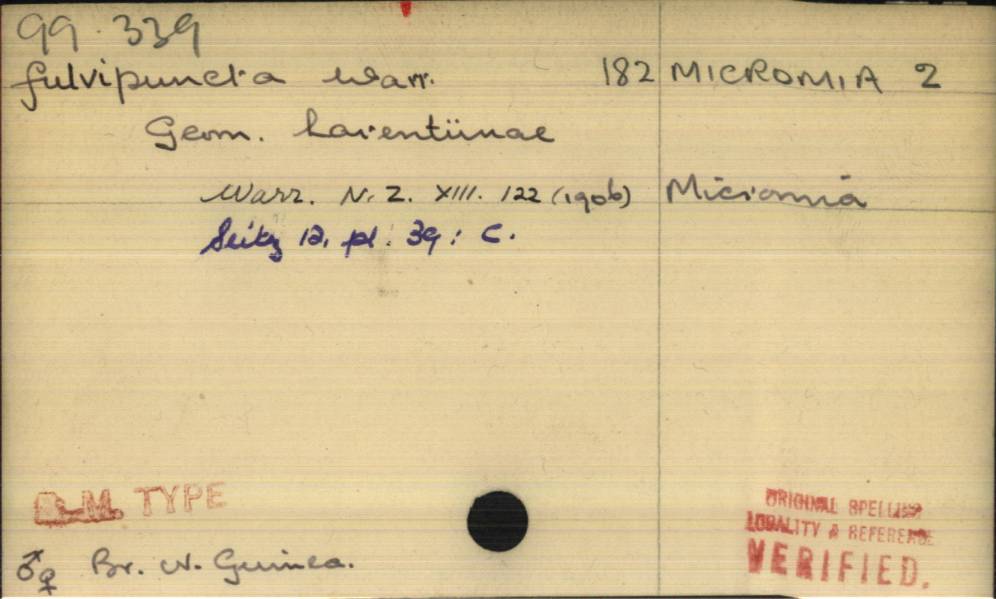 99.339
fulvipuncta Warr. 182 MICROMIA 2
Geom. Larentiinae
Warr. N. Z. XIII. 122 (1906) Micromia
Seitz 12, pl. 39 : C.
B.M. TYPE
ORIGINAL SPELLING
LOCALITY & REFERENCE
VERIFIED.
♂♀ Br. N. Guinea.